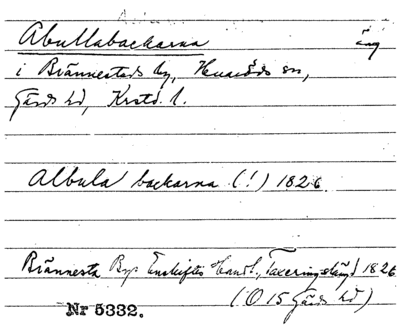 Abullabackarna äng
i Brännestads by, Huaröds sn,
Gärds hd, Krstd. l.
Albula backarna (!) 1826.
Brännesta Bys Enskiftes Handl., Taxeringslängd 1826
(O 15 Gärds hd)
Nr 5332.